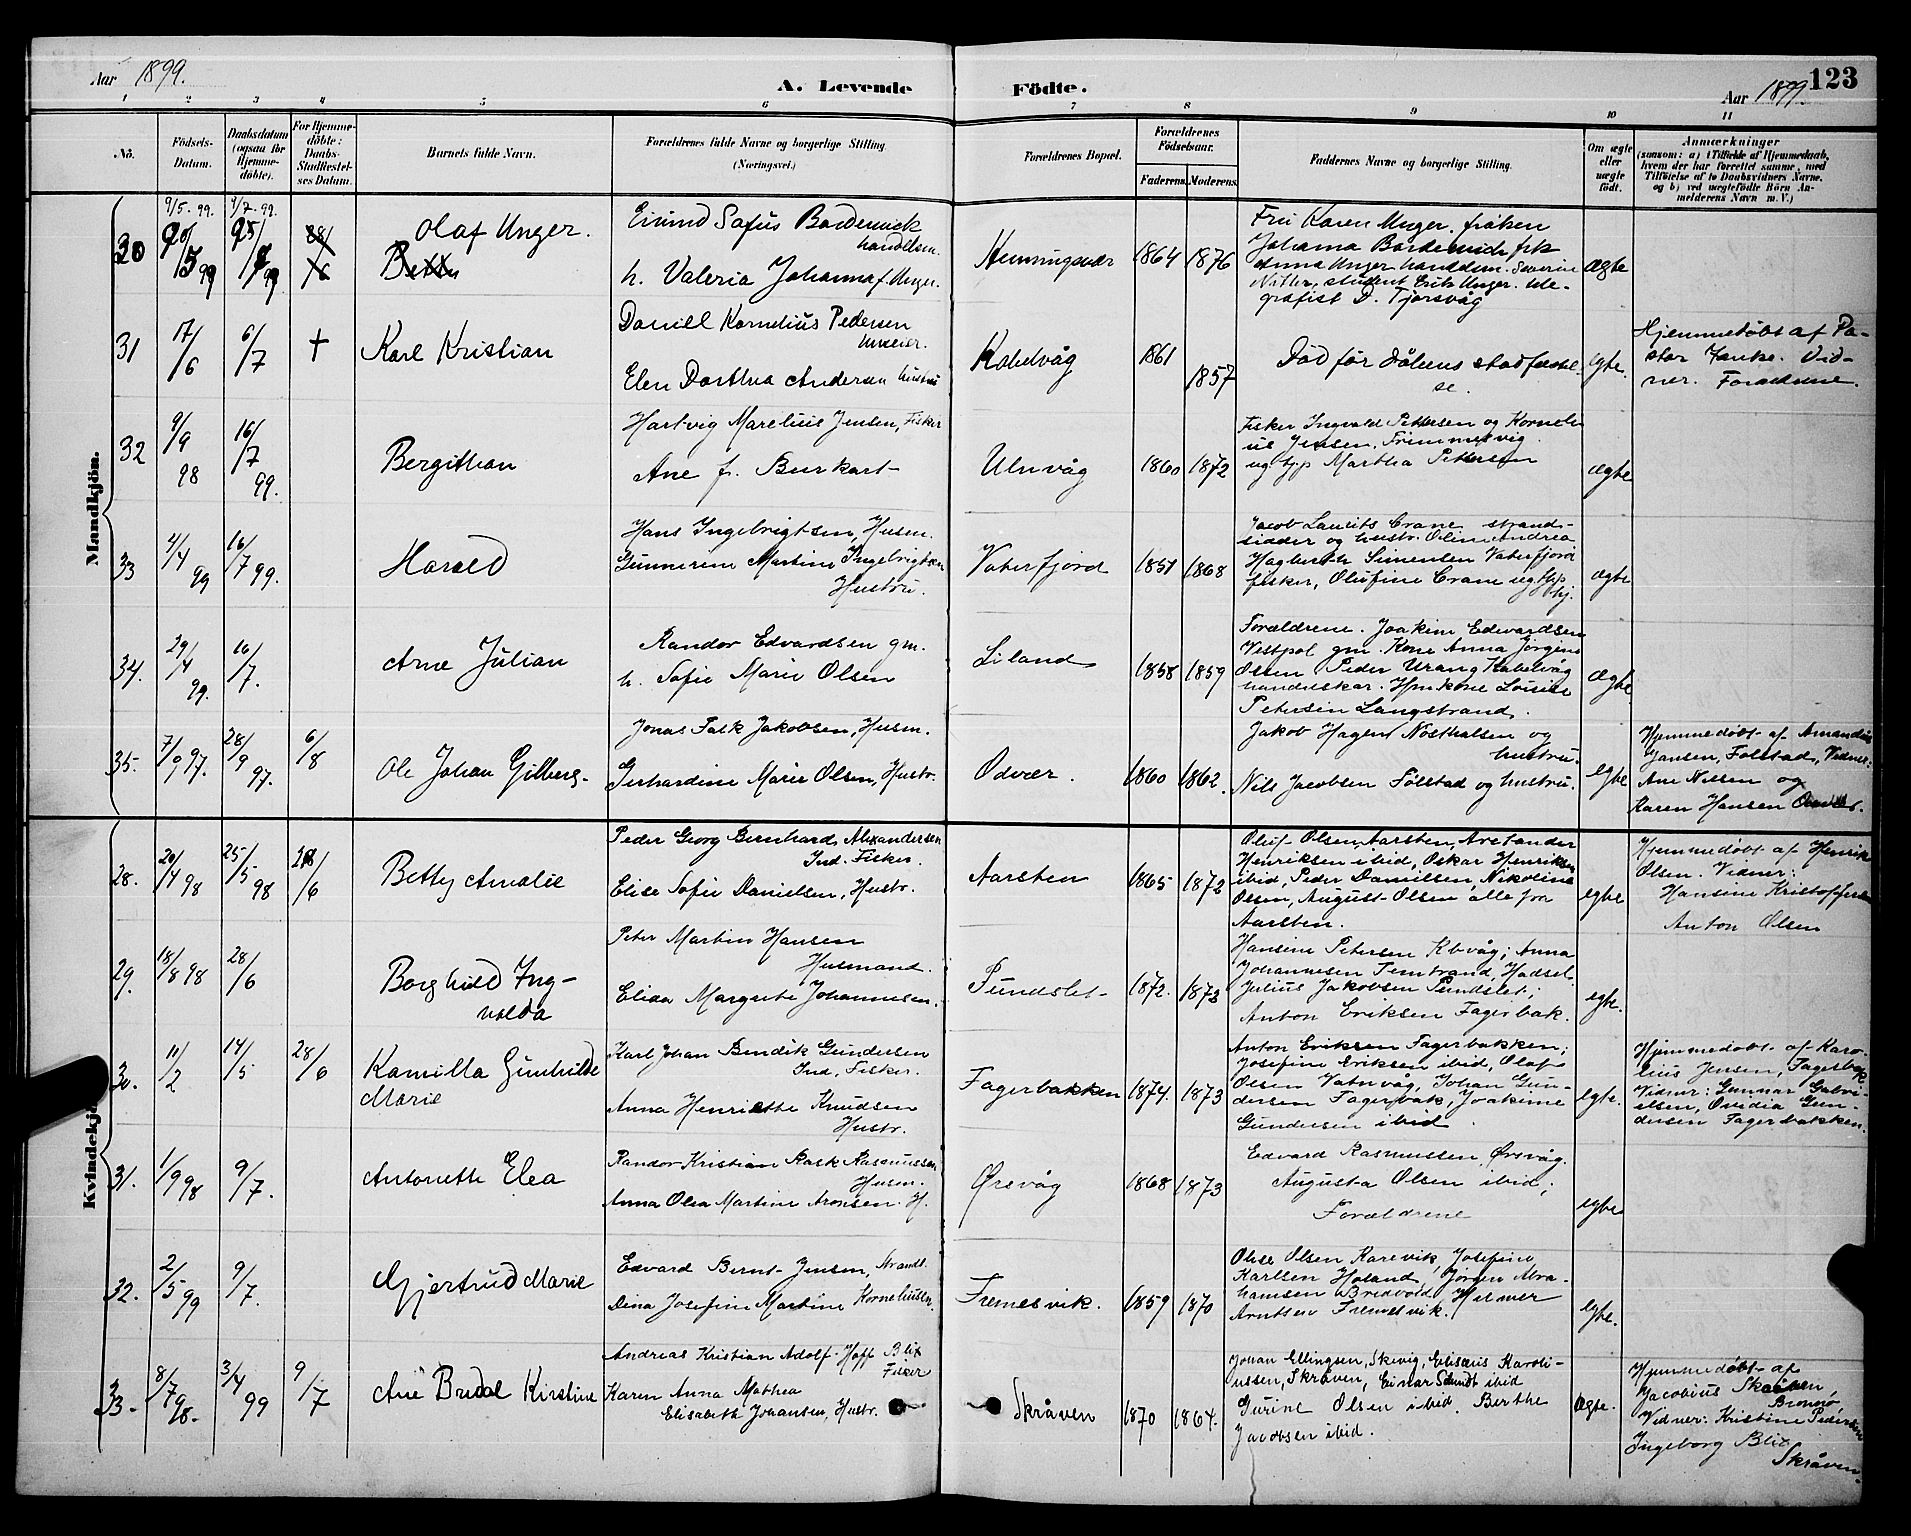 Aar 1899.
A. Levende Födte.
Aar 1899.
123
1 2 3 4 5 6 7 8 9 10 11
No.
Födsels-Datum.
Daabsdatum (ogsaa for Hjemme-döbte).
For Hjemme-döbte: Daabs-Stadfæstel-ses Datum.
Barnets fulde Navn.
Forældrenes fulde Navne og borgerlige Stilling (Næringsvei.)
Forældrenes Bopæl.
Forældrenes Födselsaar.
Faderens. Moderens.
Faddernes Navne og borgerlige Stilling.
Om ægte eller uægte födt.
Anmærkninger
(saasom: a) i Tilfælde af Hjemmedaab, hvem der har forrettet samme, med Tilföielse af to Daabsvidners Navne, og b) ved uægtefödte Börn An-melderens Navn m. V.)
Mandkjön.
30 9/5 99. 9/7 99. Olaf Unger.
Eivind Sofus Bordewick
handelsm.
h. Valeria Johanna f. Unger.
Henningsvær 1864 1876
Fru Karen Unger. frøken
Johanna Bordewick, frk
Anna Unger handelsm. Severin
Nitter, student Erik Unger. tele-
grafist D. Tjorsvåg
ægte
31 17/6 6/7 + Karl Kristian
Daniell Kornelius Pedersen
Elen Dorthea Andersen hustru
Kabelvåg 1861 1857
Død før dåbens stadfæstel-
se.
egte.
Hjemmedøbt af Pa-
stor Janke. Vid-
ner. Forældrene.
32 9/9 98 16/7 99. Bergithon
Hartvig Marelius Jensen, Fisker
Ane f. Burkart
Ulvåg 1860 1872
Fisker Ingvald Pettersen og Korneli-
us Jensen, Fremmesvig
ug tjp Martha Pettersen
ægte
33 4/4 99 16/7 99. Harald
Hans Ingebrigtsen, Husm.
Gunnerine Martine Ingebrigtsen
Hustru.
Vaterfjord 1851 1868
Jacob Laurits Crane strand-
sidder og hustr. Oline Andrea
Hagberth Simensen Vaterfjord
fisker, Olufine Crane ug tjp
hj.
ægte
34. 29/4 99. 16/7. Arne Julian
Randor Edvardsen gm.
h. Sofie Marie Olsen
Liland 1858 1859
Forældrene. Joakim Edvardsen
Vestpol gm. Kone Anna Jørgine
Olsen Peder Urang Kabelvåg
handelskar. Hmkone Lovise
Petersen Langstrand.
ægte
35. 7/9 97. 28/9 97. 6/8 Ole Johan Gilberg.
Jonas Falk Jakobsen, Husm.
Gerhardine Marie Olsen, Hustr.
Odvær. 1860 1862.
Jakob Hagen Nosthalsen og
hustru.
Nils Jacobsen Følstad og hustru.
egte
Hjemmedøbt af Amandus
Jansen, Følstad, Vidner:
Ane Nilsen og
Karen Hansen
Kvindekjön.
28. 20/4 98 25/5 98 28/6 Betty Amalie
Peder Georg Bernhard Alexandersen
Ind. Fisker.
Elise Sofie Danielsen, Hustr.
Aarsten 1865 1872
Oluf Olsen Aarsten, Arstander
Henriksen ibid, Oskar Henriksen
ibid, Peder Danielsen, Nikoline
Olsen, August Olsen alle fra
Aarsten.
egte
Hjemmedøbt af Henrik
Olsen. Vidner:
Hansine Kristoffersen
Anton Olsen
29. 18/8 98 28/6 Borghild Ing-
valda
Peter Martin Hansen
Husmand.
Elida Margrete Johannesen.
Pundslet 1872. 1873
Hansine Petersen Kbvåg; Anna
Johannesen Temtrand, Hadsel.
Julius Jakobsen Pundslet;
Anton Eriksen Fagerbak.
egte.
30. 11/2 14/5 28/6 Kamilla Gunhilde
Marie
Karl Johan Bendik Gundersen
Ind. Fisker.
Anna Henriette Knudsen
Hustr.
Fagerbakken 1874. 1873
Anton Eriksen Fagerbakken;
Josefine Eriksen ibid, Olaf
Olsen Vatnvåg, Johan Gun-
dersen Fagerbak, Joakime
Gundersen ibid.
egte.
Hjemmedøbt af Karo-
lius Jensen, Fagerbak
Vidner: Gunnar Gabri-
elsen, Ovidia Gun-
dersen Fagerbakken.
31. 1/9 98 9/7. Antonette Elea
Randor Kristian Rask Rasmussen
Husm.
Anna Olea Martine Aronsen. H.
Ørsvåg 1868 1873
Edvard Rasmussen, Ørsvåg.
Augusta Olsen ibid;
Forældrene
egte
32. 2/5 99 9/7. Gjertrud Marie
Edvard Bernt Jensen, Strands.
Dina Josefine Martine Korneliussen.
Fremesvik. 1859 1870
Oluse Olsen Karevik, Josefine
Karlsen Høland, Jørgen Abra-
hamsen Bredvold, Hilmer
Arntsen Fremesvik.
egte.
33. 8/7 98. 3/4 99 9/7 Ane Bredal Kirstine
Andreas Kristian Adolf Hoff Blix
Fisker
Karen Anna Mathea
Elisabeth Johansen, Hustr.
Skråven 1870 1864.
Johan Ellingsen, Skevig, Eliseus Karoli-
ussen, Skråven, Einar Schmidt ibid
Gurine Olsen ibid. Berthe
Jacobsen ibid.
Ægte.
Hjemmedøbt af
Jacobius Skråven,
Bronnø,
Vidner: Kristine Pedersen
Ingeborg Blix
Skråven.